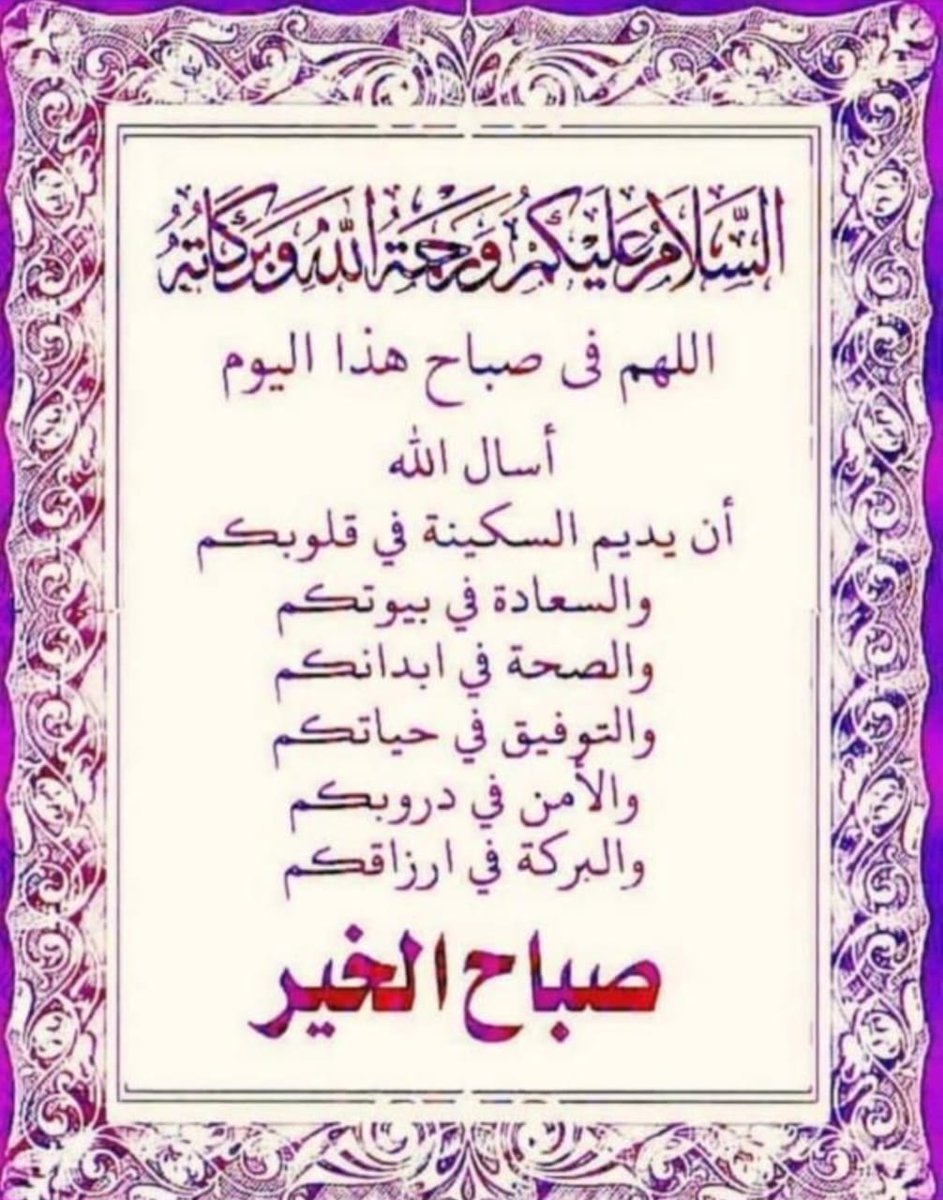 السَّلَامُ عَلَيْكُمْ وَرَحْمَةُ اللهِ وَبَرَكَاتُهُ
اللهم فى صباح هذا اليوم
أسال الله
أن يديم السكينة في قلوبكم
والسعادة في بيوتكم
والصحة في ابدانكم
والتوفيق في حياتكم
والأمن في دروبكم
والبركة في ارزاقكم
صباح الخير